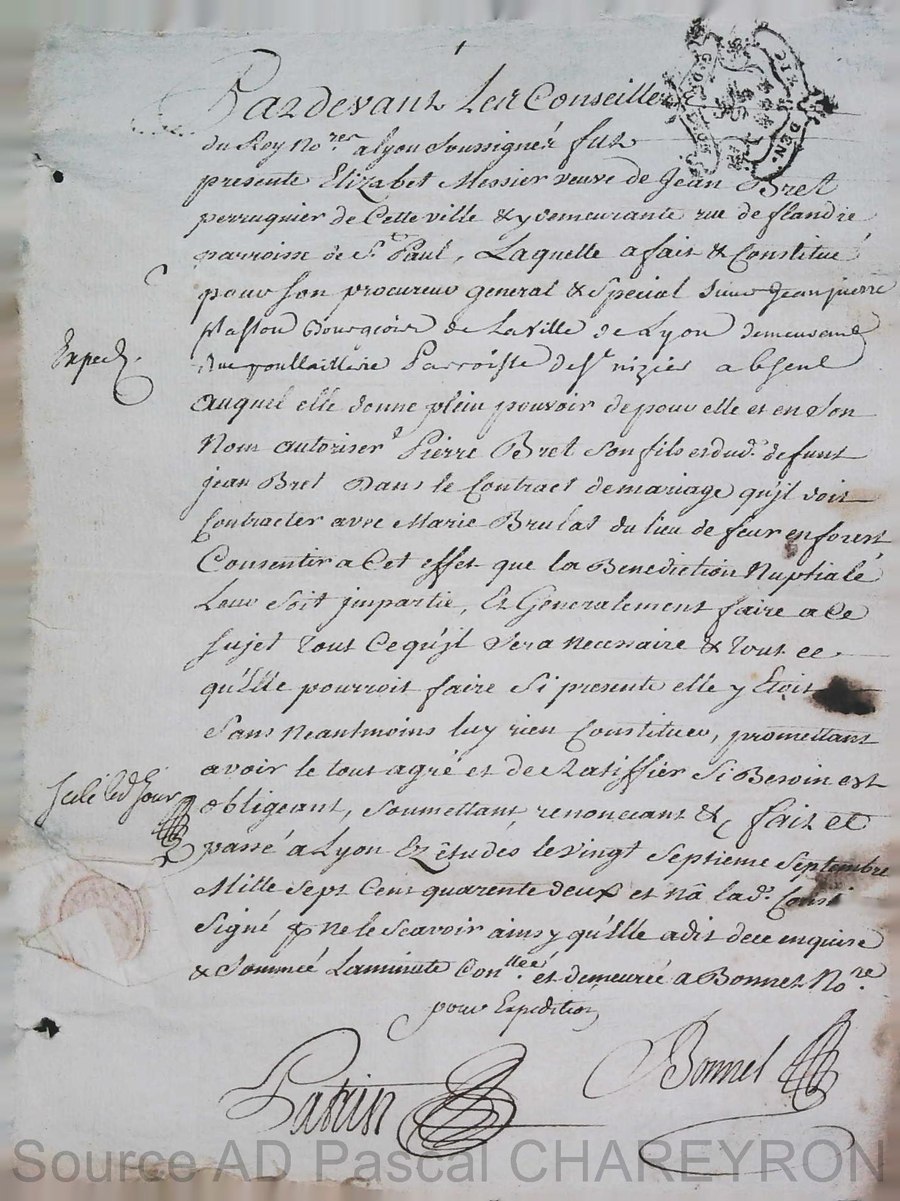 Pardevant Les Conseillers
du Roy No.res a lyon soussignés fut
presente Elizabet Messier veuve de Jean Bret
perruquier de Cette ville & y demeurante rue de flandre
parroisse de St. Paul, Laquelle a fait & Constitué
pour son procureur general & special sieur Jean pierre
Bourgeois de La ville de Lyon demeurant
Rue poullaillerie Parroisse de St nizier absent
auquel elle donne plein pouvoir de pour elle et en son
Nom autoriser Pierre Bret son fils et dud. defunt
jean Bret Dans le Contract de mariage qu'jl doit
Contracter avec Marie Brulas du lieu de feur en forest
Consentir a Cet effet que la Benediction Nuptiale
Leur soit jmpartie, Et Generalement faire a Ce
sujet tout Ce qu'jl sera necessaire & tout ce
qu'Elle pourroit faire si presente elle y Etoit
sans neantmoins luy rien Constituer, promettant
avoir le tout agré et de Ratiffier si Besoin est
obligeant, soumettant renoncant & fait et
passé a Lyon Ez études le vingt septieme septembre
Mille sept Cent quarente deux et nâ lad. Consti
signé p ne le scavoir ainsy qu'Elle a dit de ce enquise
& sommeé La minute Con.lleé et demeureé a Bonnet No.re
pour Expedition
Bonnet
Patrin
Exped
scelé led jour
DEN.
Source AD Pascal CHAREYRON